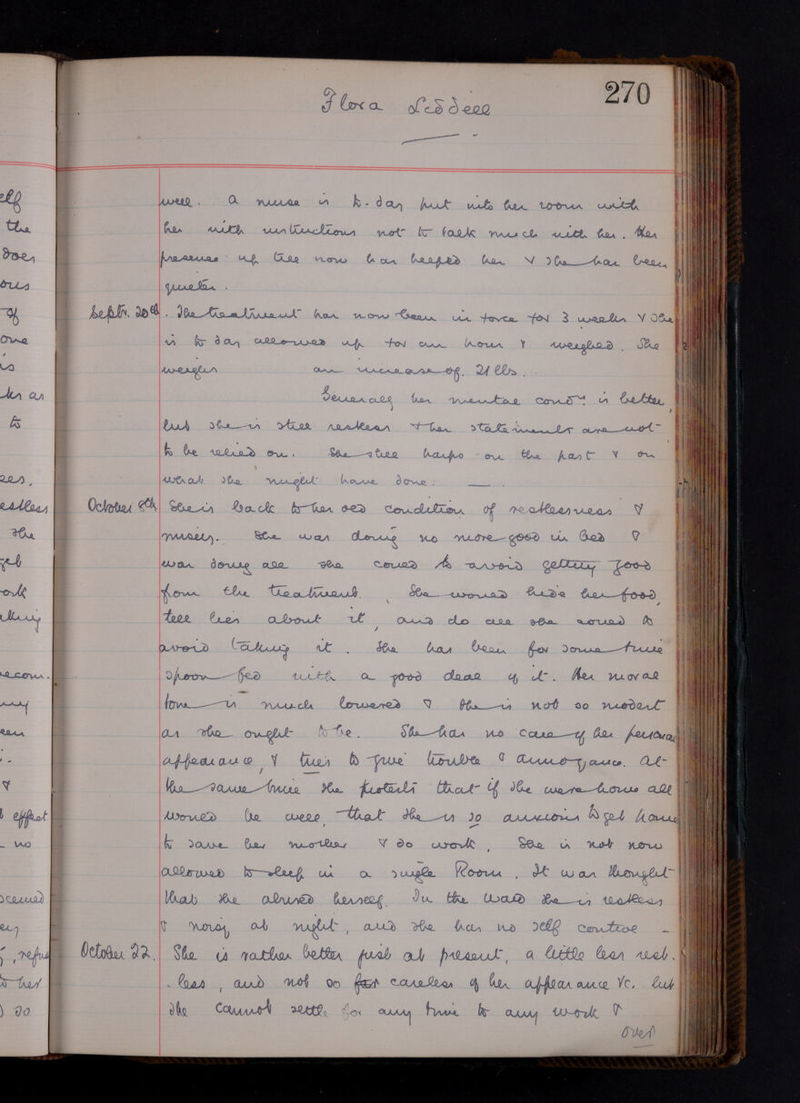 270
Flora Liddell
well. A nurse is to-day put into her room with
her with instructions not to talk much with her. Her
presence up till now has helped her & she has been
quieter.
Septr. 20th. The treatment has now been in force for 3 weeks & She
is to day allowed up for an hour & weighed. She
weighs an increase of. 21 lbs.
Generally her mental condn. is better,
but she is still restless & her statements are not
to be relied on. She still harps on the past & on
what she might have done.
October 8th She is back to her old condition of restlessness &
misery. She was doing no more good in Bed &
was doing all she could to avoid getting good
from the treatment. She would hide her food,
tell lies about it, and do all she could to
avoid taking it. She has been for some time
spoon fed with a good deal of it. Her moral
tone is much lowered & she is not so modest
as she ought to be. She has no care of her personal
appearance, & tries to give trouble & annoyance. At
the same time she protests that if she were home all
would be well, that she is so anxious to get home
to save her mother & do work. She is not now
allowed to sleep in a single Room. It was thought
that she abused herself. In the Ward she is restless
& noisy at night, and she has no self control -
October 22. She is rather better just at present, a little less rest-
-less, and not so far careless of her appearance &c. but
she cannot settle for any time to any work &
over
elf
the
does
ous
of
one
is
as
to
estless
she
get
ork
recom.
&
effect
no
, refus
to her
do